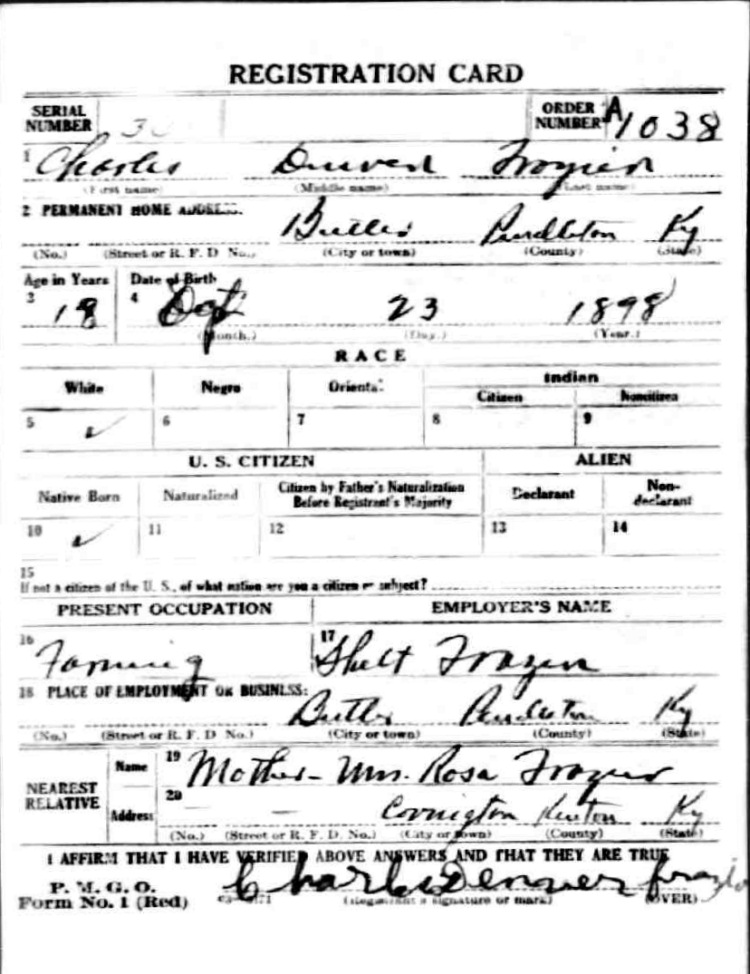 REGISTRATION CARD
SERIAL NUMBER ORDER NUMBER A 1038
1 Charles Denver Frazier
(First name) (Middle name) (Last name)
2 PERMANENT HOME ADDRESS:
Butler Pendleton Ky
(No.) (Street or R. F. D. No.) (City or town) (County) (State)
Age in Years Date of Birth
3 18 4 23 1898
(Month.) (Day.) (Year.)
RACE
White Negro Oriental Indian
Citizen Noncitizen
5 6 7 8 9
U. S. CITIZEN ALIEN
Native Born Naturalized Citizen by Father's Naturalization Before Registrant's Majority Declarant Non-declarant
10 11 12 13 14
15
If not a citizen of the U. S., of what nation are you a citizen or subject?
PRESENT OCCUPATION EMPLOYER'S NAME
16 Farming 17 Shelt Frazier
18 PLACE OF EMPLOYMENT OR BUSINESS:
Butler Pendleton Ky
(No.) (Street or R. F. D. No.) (City or town) (County) (State)
NEAREST RELATIVE Name 19 Mother - Mrs. Rosa Frazier
Address 20 — — Covington Kenton Ky
(No.) (Street or R. F. D. No.) (City or town) (County) (State)
I AFFIRM THAT I HAVE VERIFIED ABOVE ANSWERS AND THAT THEY ARE TRUE
P. M. G. O.
Form No. 1 (Red) Charles Denver Frazier
(Registrant's signature or mark) (OVER)